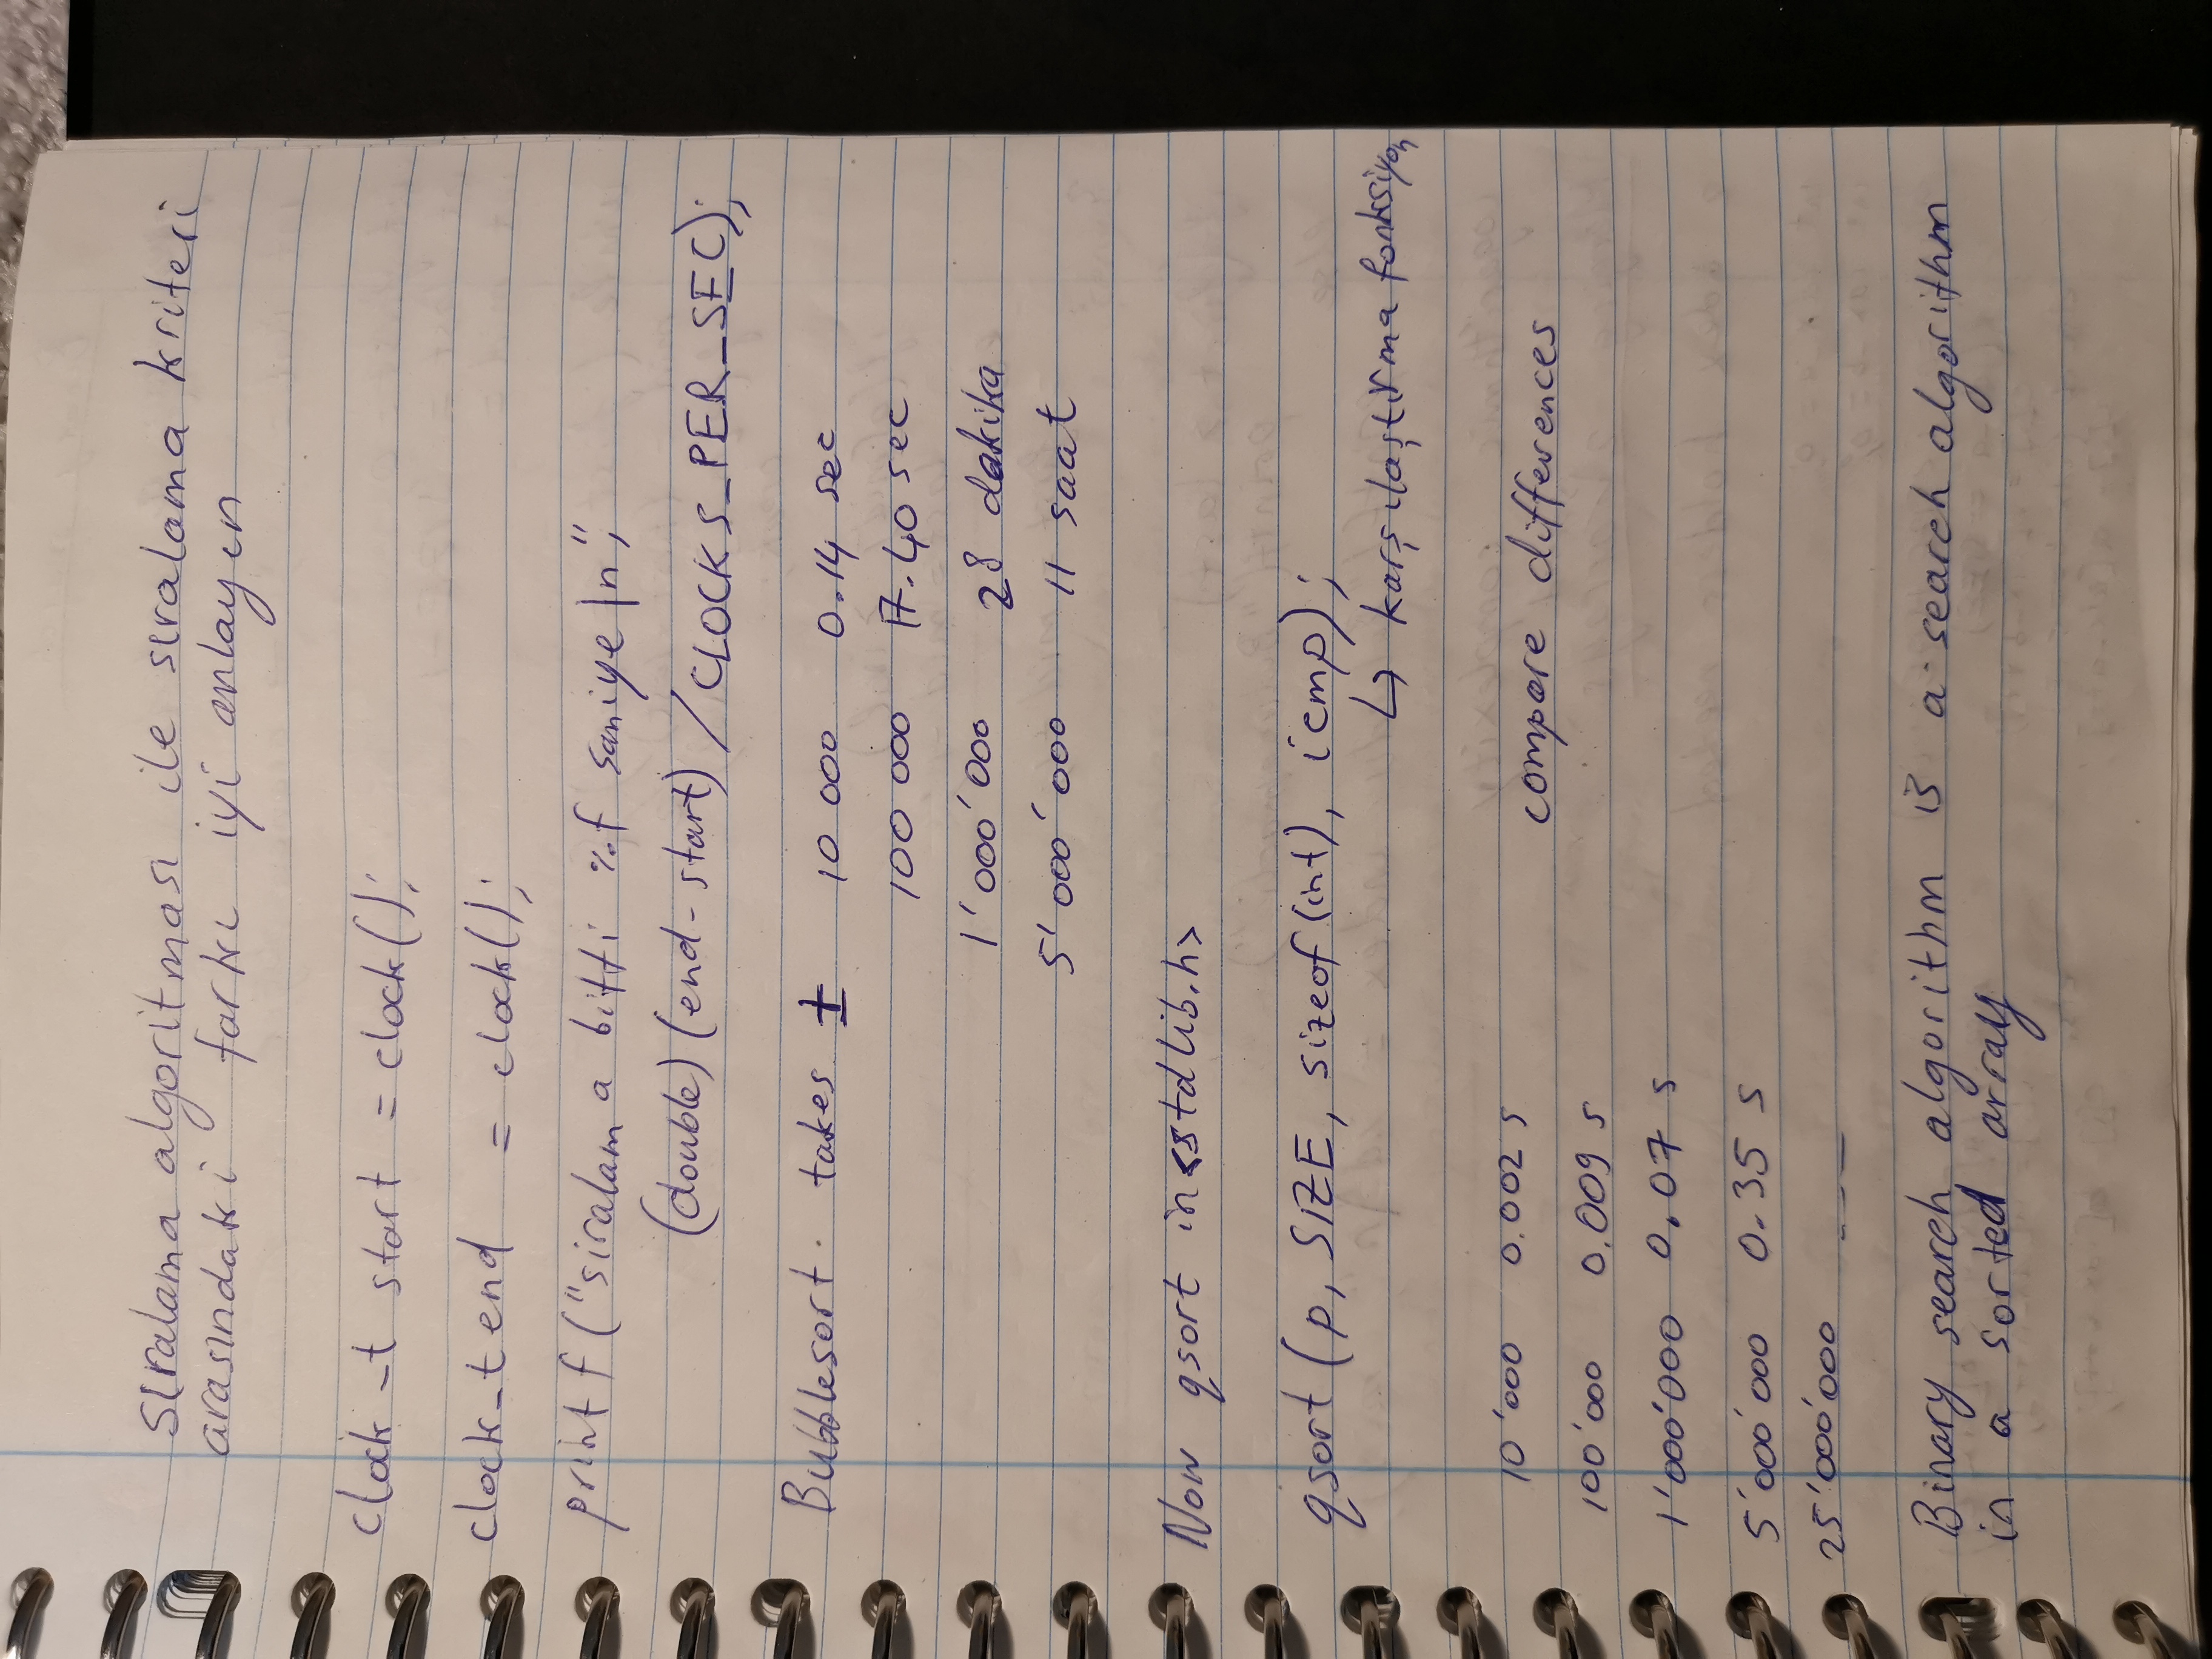 sıralama algoritması ile sıralama kriteri
arasındaki farkı iyi anlayın
clock_t start = clock();
clock_t end = clock();
printf("siralama bitti %f saniye\n",
(double)(end-start)/CLOCKS_PER_SEC);
Bubblesort takes ± 10 000 0.14 sec
100 000 17.40 sec
1'000'000 28 dakika
5'000'000 11 saat
Now qsort in <stdlib.h>
qsort(p, SIZE, sizeof(int), icmp);
↳ karşılaştırma fonksiyon
10'000 0.002 s compare differences
100'000 0.009 s
1'000'000 0.07 s
5'000'000 0.35 s
25'000'000 ---
Binary search algorithm is a search algorithm
in a sorted array